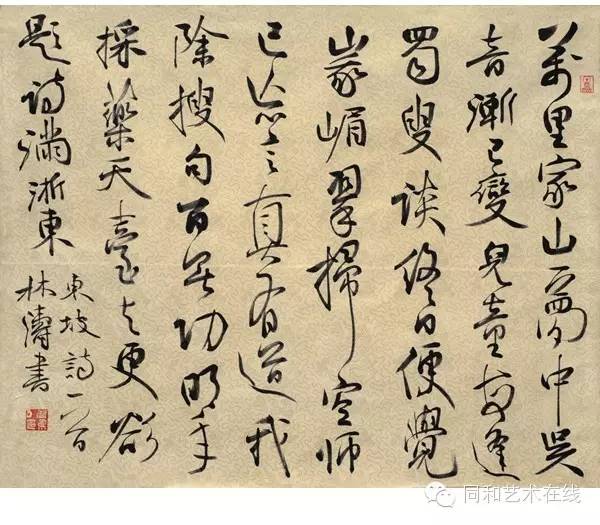 萬里家山一夢中吴
音漸已變兒童每逢
蜀叟談終日便覺
峩嵋翠掃空師
已忘言真有道我
除搜句百無功明年
採藥天臺去更欲
題詩滿浙東
東坡詩一首
林濤書
同和艺术在线